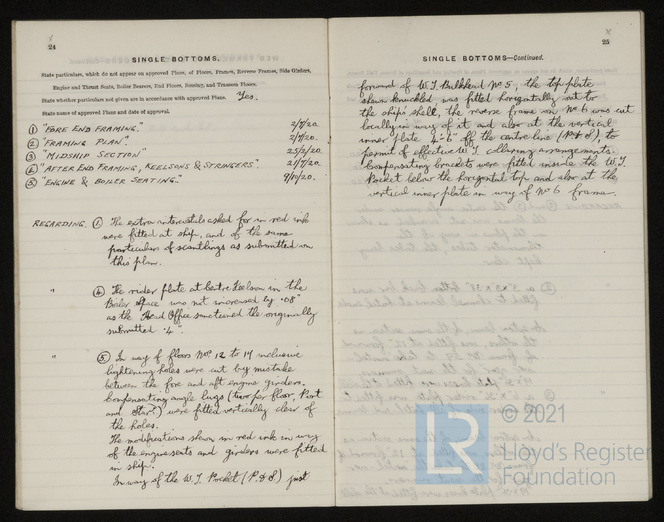 24
SINGLE BOTTOMS.
State particulars, which do not appear on approved Plans, of Floors, Frames, Reverse Frames, Side Girders,
Engine and Thrust Seats, Boiler Bearers, End Floors, Bossing, and Transom Floors.
State whether particulars not given are in accordance with approved Plans. Yes.
State name of approved Plans and date of approval.
① "FORE END FRAMING." 2/7/20.
② "FRAMING PLAN". 2/7/20.
③ "MIDSHIP SECTION" 25/2/20.
④ "AFTER END FRAMING, KEELSONS & STRINGERS" 21/7/20.
⑤ "ENGINE & BOILER SEATING." 9/10/20.
REGARDING. ① The extra intercostals asked for in red ink
were fitted at ship, and of the same
particulars of scantlings as submitted on
this plan.
" ④ The rider plate at Centre Keelson in the
Boiler Space was not increased by .08"
as the Head Office sanctioned the originally
submitted .4".
" ⑤ In way of floors Nos. 12 to 17 inclusive
lightening holes were cut by mistake
between the fore and aft engine girders.
Compensating angle lugs (two per floor, Port
and Star'd) were fitted vertically clear of
the holes.
The modifications shewn in red ink in way
of the engine seats and girders were fitted
in ship.
In way of the W.T. Pocket (P. & S.) just
25
SINGLE BOTTOMS—Continued.
forward of W.T. Bulkhead No 5, the top plate
shewn knuckled was fitted horizontally out to
the ship's shell, the reverse frame on No 6 was cut
locally in way of it and also at the vertical
inner plate 4'-6" off the centre line (P. & S.), to
permit of effective W.T. collaring arrangements.
Compensating brackets were fitted inside the W.T.
Pocket below the horizontal top and also at the
vertical inner plate in way of No 6 frame.
© 2021
LR
Lloyd's Register
Foundation